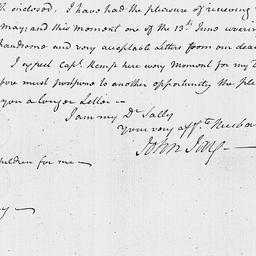 enclosed. I have had the pleasure of recieving
May; and this moment one of the 13th June coverin
handsome and very acceptable Letters from our dear
I expect Capt. Kemp here every Moment for my
fore must postpone to another opportunity the ple
you a longer Letter --
I am my Dr Sally
Your very afft. Husba
John Jay —
children for me —